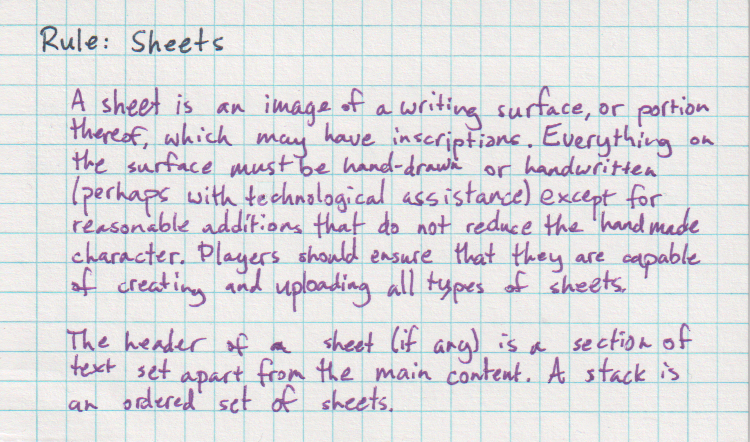 Rule: Sheets
A sheet is an image of a writing surface, or portion
thereof, which may have inscriptions. Everything on
the surface must be hand-drawn or handwritten
(perhaps with technological assistance) except for
reasonable additions that do not reduce the handmade
character. Players should ensure that they are capable
of creating and uploading all types of sheets.
The header of a sheet (if any) is a section of
text set apart from the main content. A stack is
an ordered set of sheets.